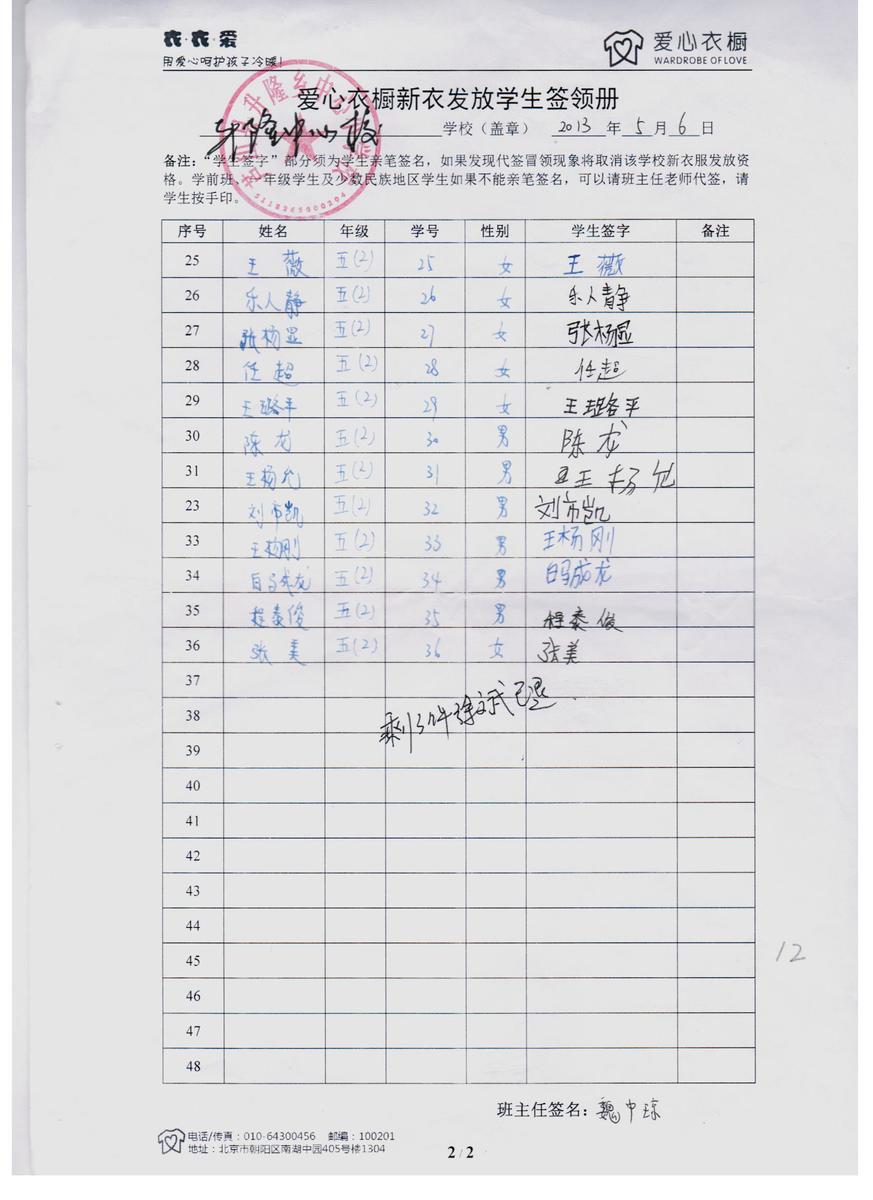 衣·衣·爱
用爱心呵护孩子冷暖!
爱心衣橱
WARDROBE OF LOVE
爱心衣橱新衣发放学生签领册
升隆中心校 学校（盖章） 2013 年 5 月 6 日
5118265000204
备注：“学生签字”部分须为学生亲笔签名，如果发现代签冒领现象将取消该学校新衣服发放资
格。学前班、一年级学生及少数民族地区学生如果不能亲笔签名，可以请班主任老师代签，请
学生按手印。
序号 姓名 年级 学号 性别 学生签字 备注
25 王薇 五(2) 25 女 王薇
26 乐人静 五(2) 26 女 乐人静
27 张杨显 五(2) 27 女 张杨显
28 任超 五(2) 28 女 任超
29 王璐平 五(2) 29 女 王璐平
30 陈龙 五(2) 30 男 陈龙
31 王杨允 五(2) 31 男 王杨允
23 刘市凯 五(2) 32 男 刘市凯
33 王杨刚 五(2) 33 男 王杨刚
34 五(2) 34 男 成龙
35 程泰俊 五(2) 35 男 程泰俊
36 张美 五(2) 36 女 张美
37
38 剩 件徐文武已退
39
40
41
42
43
44
45
12
46
47
48
班主任签名：魏中琼
电话/传真：010-64300456 邮编：100201
地址：北京市朝阳区南湖中园405号楼1304
2 / 2